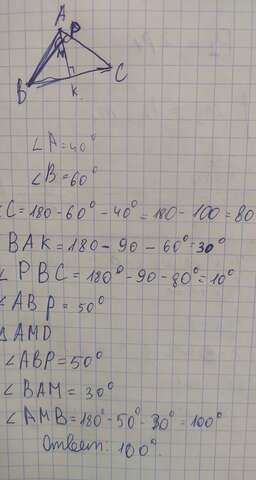 A
P
M
B
K
C
∠A=40°
∠B=60°
∠C=180-60°-40°=180-100=80
BAK=180-90-60°=30°
∠PBC=180°-90-80°=10°
∠ABP=50°
△AMD
∠ABP=50°
∠BAM=30°
∠AMB=180°-50°-30°=100°
Ответ: 100°.